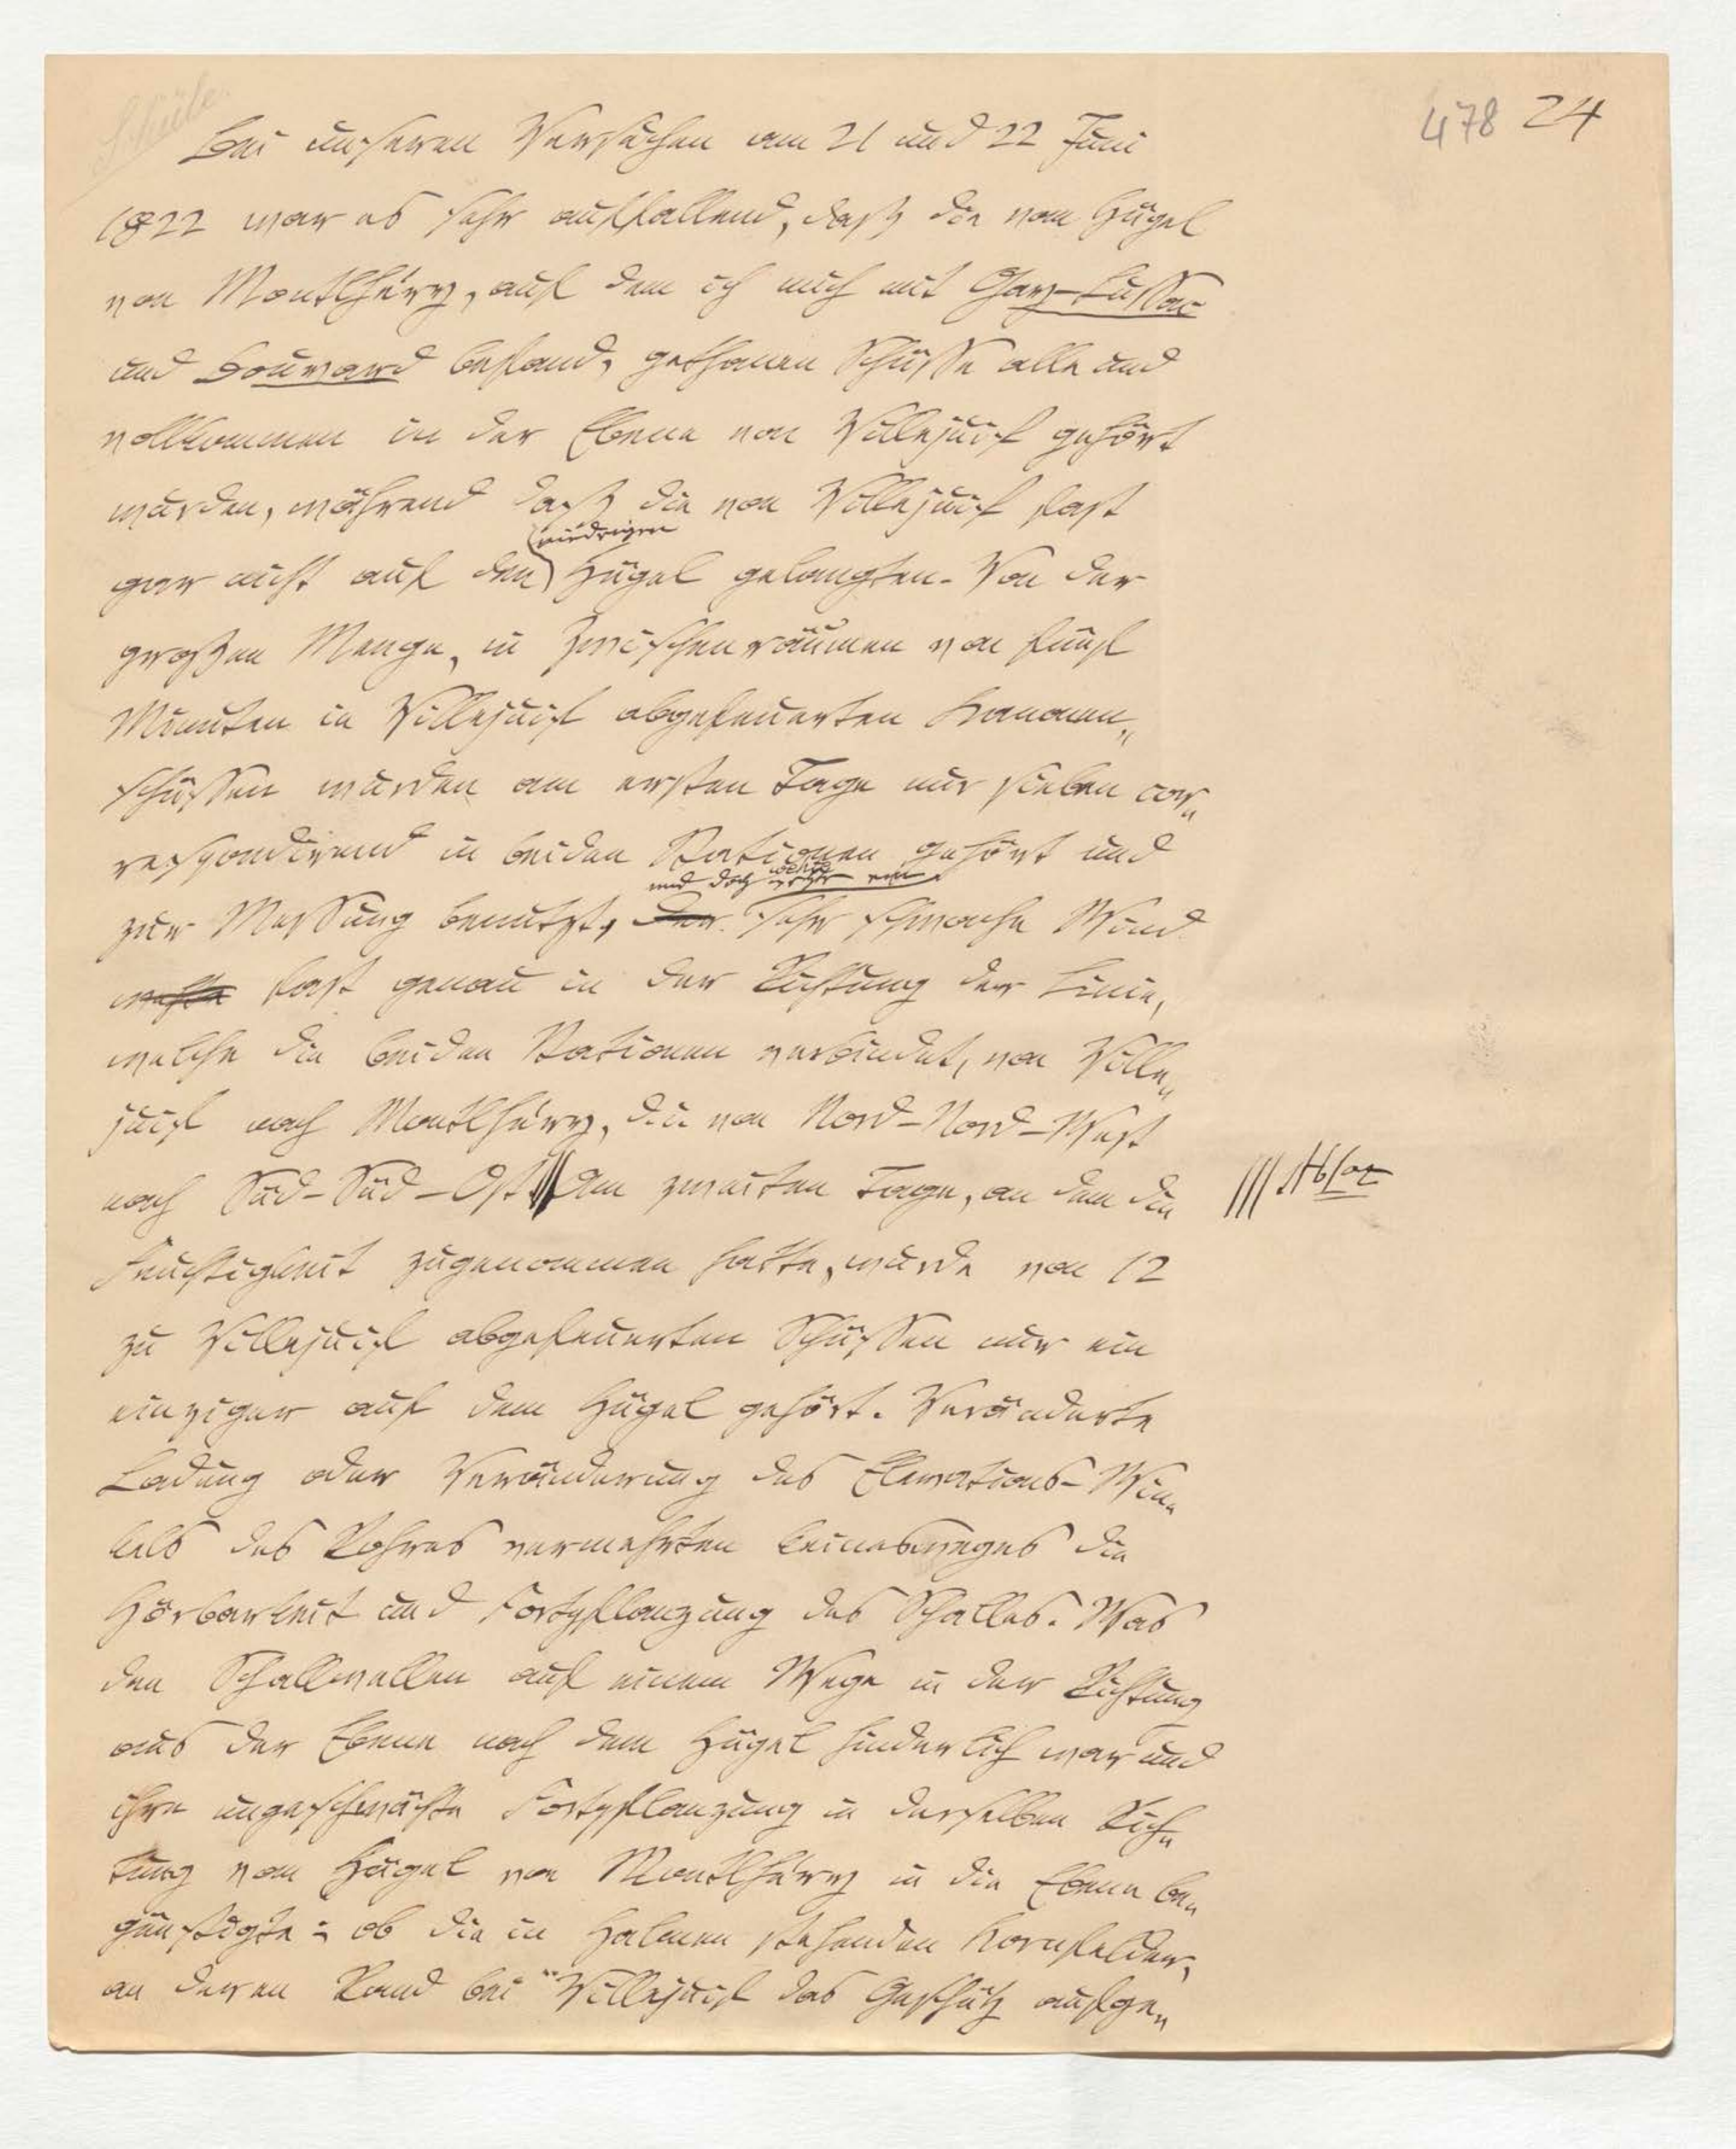 478 24
Bei unseren Versuchen am 21 und 22 Juni
1822 war es sehr auffallend, daß die vom Hügel
von Montlhéry, auf dem ich mich mit Gay-Lussac
und Bouvard befand, gethanen Schüsse alle und
vollkommen in der Ebene von Villejuif gehört
wurden, während daß die von Villejuif fast
niedrigen
gar nicht auf den Hügel gelangten. Von der
großen Menge, in Zwischenräumen von fünf
Minuten in Villejuif abgefeuerten Kanonen„
schüssen wurden am ersten Tage nur sieben cor„
respondirend in beiden Stationen gehört und
und doch wehte ein
zur Messung benutzt, der sehr schwache Wind
wehte fast genau in der Richtung der Linie,
welche die beiden Stationen verbindet, von Ville„
juif nach Montlhéry, die von Nord-Nord-West
nach Süd-Süd-Ost. Am zweiten Tage, an dem die
||| Absaz
Feuchtigkeit zugenommen hatte, wurde von 12
zu Villejuif abgefeuerten Schüssen nur ein
einziger auf dem Hügel gehört. Veränderte
Ladung oder Veränderung des Elevations-Win„
kels des Rohres vermehrten keinesweges die
Hörbarkeit und Fortpflanzung des Schalles. Was
den Schallwellen auf einem Wege in der Richtung
aus der Ebene nach dem Hügel hinderlich war und
ihre ungeschwächte Fortpflanzung in derselben Rich„
tung vom Hügel von Montlhéry in die Ebene be„
günstigte: ob die in Halmen stehenden Kornfelder,
an deren Rand bei Villejuif das Geschütz aufge„